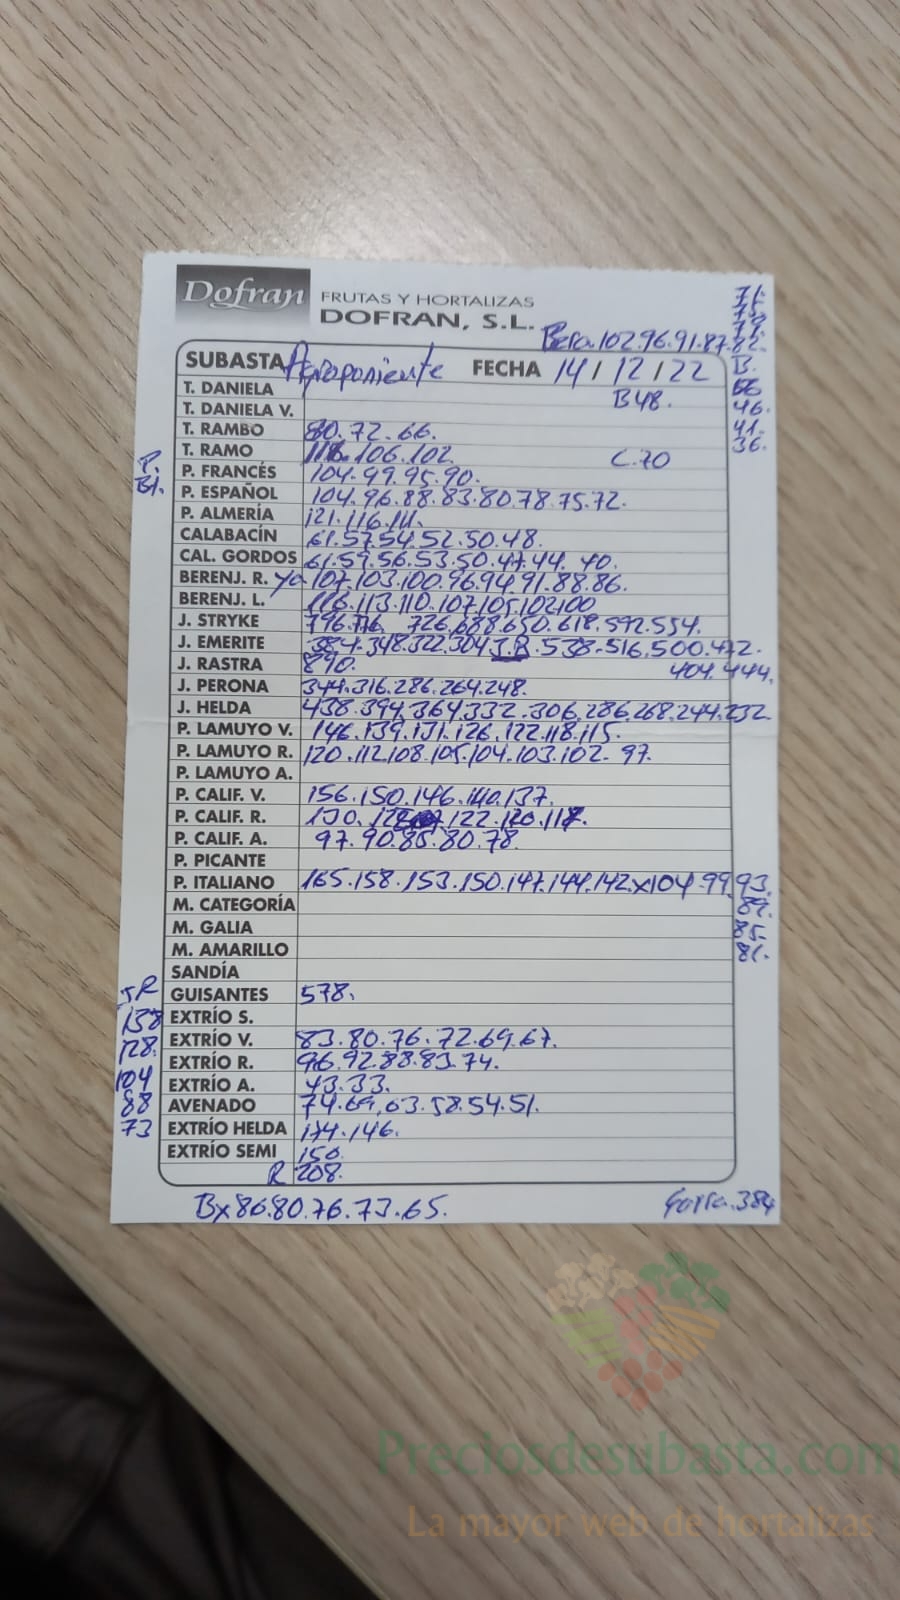 Dofran FRUTAS Y HORTALIZAS
DOFRAN, S.L.
71.
79.
Bera.102.96.91.87.82.
SUBASTA Agroponiente FECHA 14/12/22 B.
T. DANIELA B48. 66
T. DANIELA V. 46.
T. RAMBO 80.72.66. 41.
36.
T. RAMO 118.106.102. C.70
P.
P. FRANCÉS 104.99.95.90.
Bl. P. ESPAÑOL 104.96.88.83.80.78.75.72.
P. ALMERÍA 121.116.111.
CALABACÍN 61.57.54.52.50.48.
CAL. GORDOS 61.59.56.53.50.47.44.40.
BERENJ. R. 107.103.100.96.94.91.88.86.
BERENJ. L. 116.113.110.107.105.102.100
J. STRYKE 796.776. 726.688.650.618.592.554.
J. EMERITE 384.348.322.304 J.R.538.516.500.472.
J. RASTRA 890. 404.444.
J. PERONA 344.316.286.264.248.
J. HELDA 438.394.364.332.306.286.268.244.232.
P. LAMUYO V. 146.139.131.126.122.118.115.
P. LAMUYO R. 120.112.108.105.104.103.102.97.
P. LAMUYO A.
P. CALIF. V. 156.150.146.140.137.
P. CALIF. R. 130. 122.120.117.
P. CALIF. A. 97.90.85.80.78.
P. PICANTE
P. ITALIANO 165.158.153.150.147.144.142.x104.99.93.
M. CATEGORÍA 89.
M. GALIA 85.
M. AMARILLO 81.
SANDÍA
JR GUISANTES 578.
138 EXTRÍO S.
128. EXTRÍO V. 83.80.76.72.69.67.
EXTRÍO R. 96.92.88.83.74.
104 EXTRÍO A. 43.33.
88 AVENADO 74.69.63.58.54.51.
73 EXTRÍO HELDA 174.146.
EXTRÍO SEMI 150.
R 208.
Bx86.80.76.73.65. 384
Preciosdesubasta.com
La mayor web de hortalizas